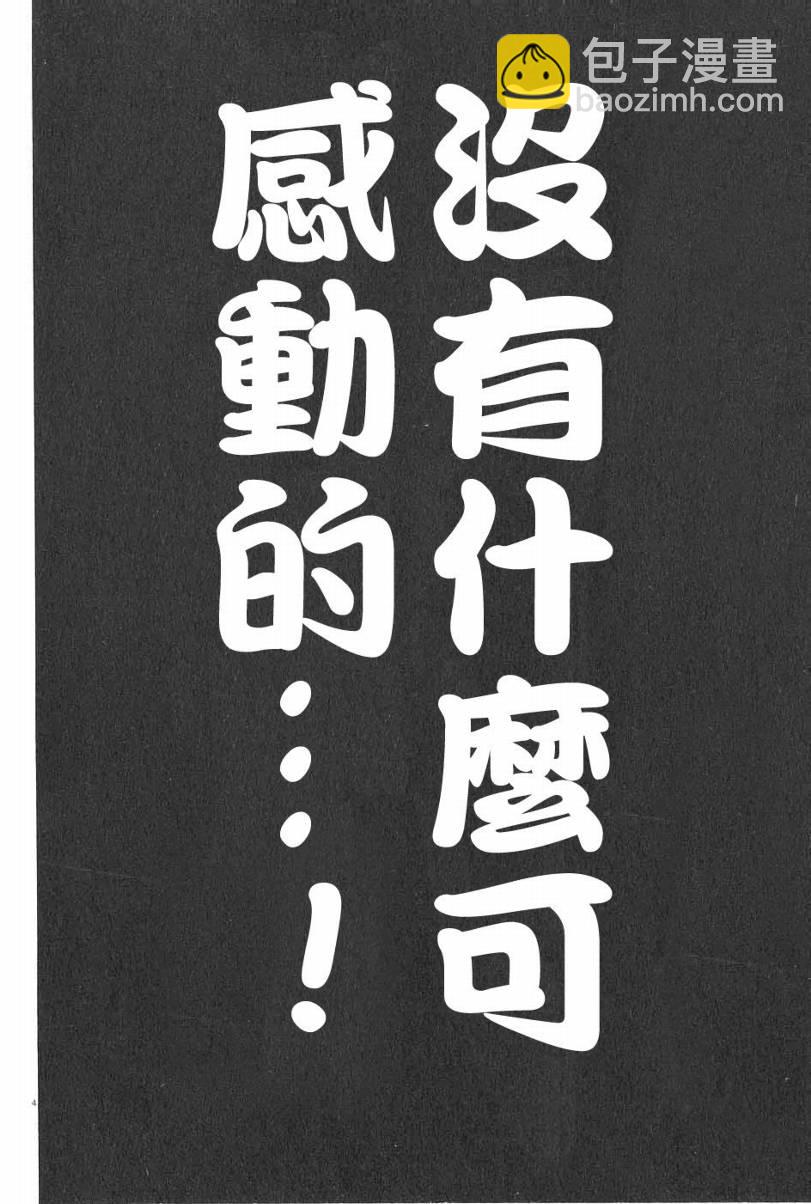 包子漫畫
baozimh.com
沒有什麼可
感動的…!
4